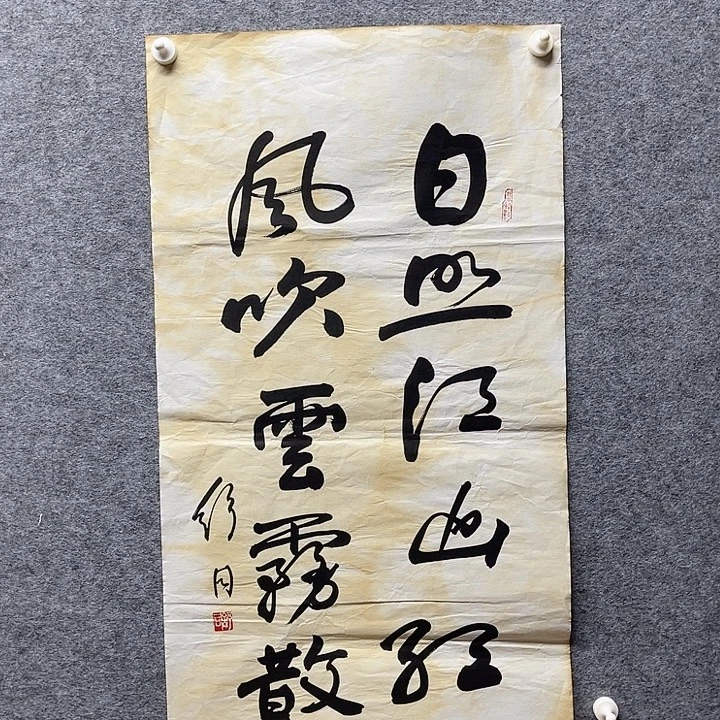 日照江山红
風吹雲霧散
舒同